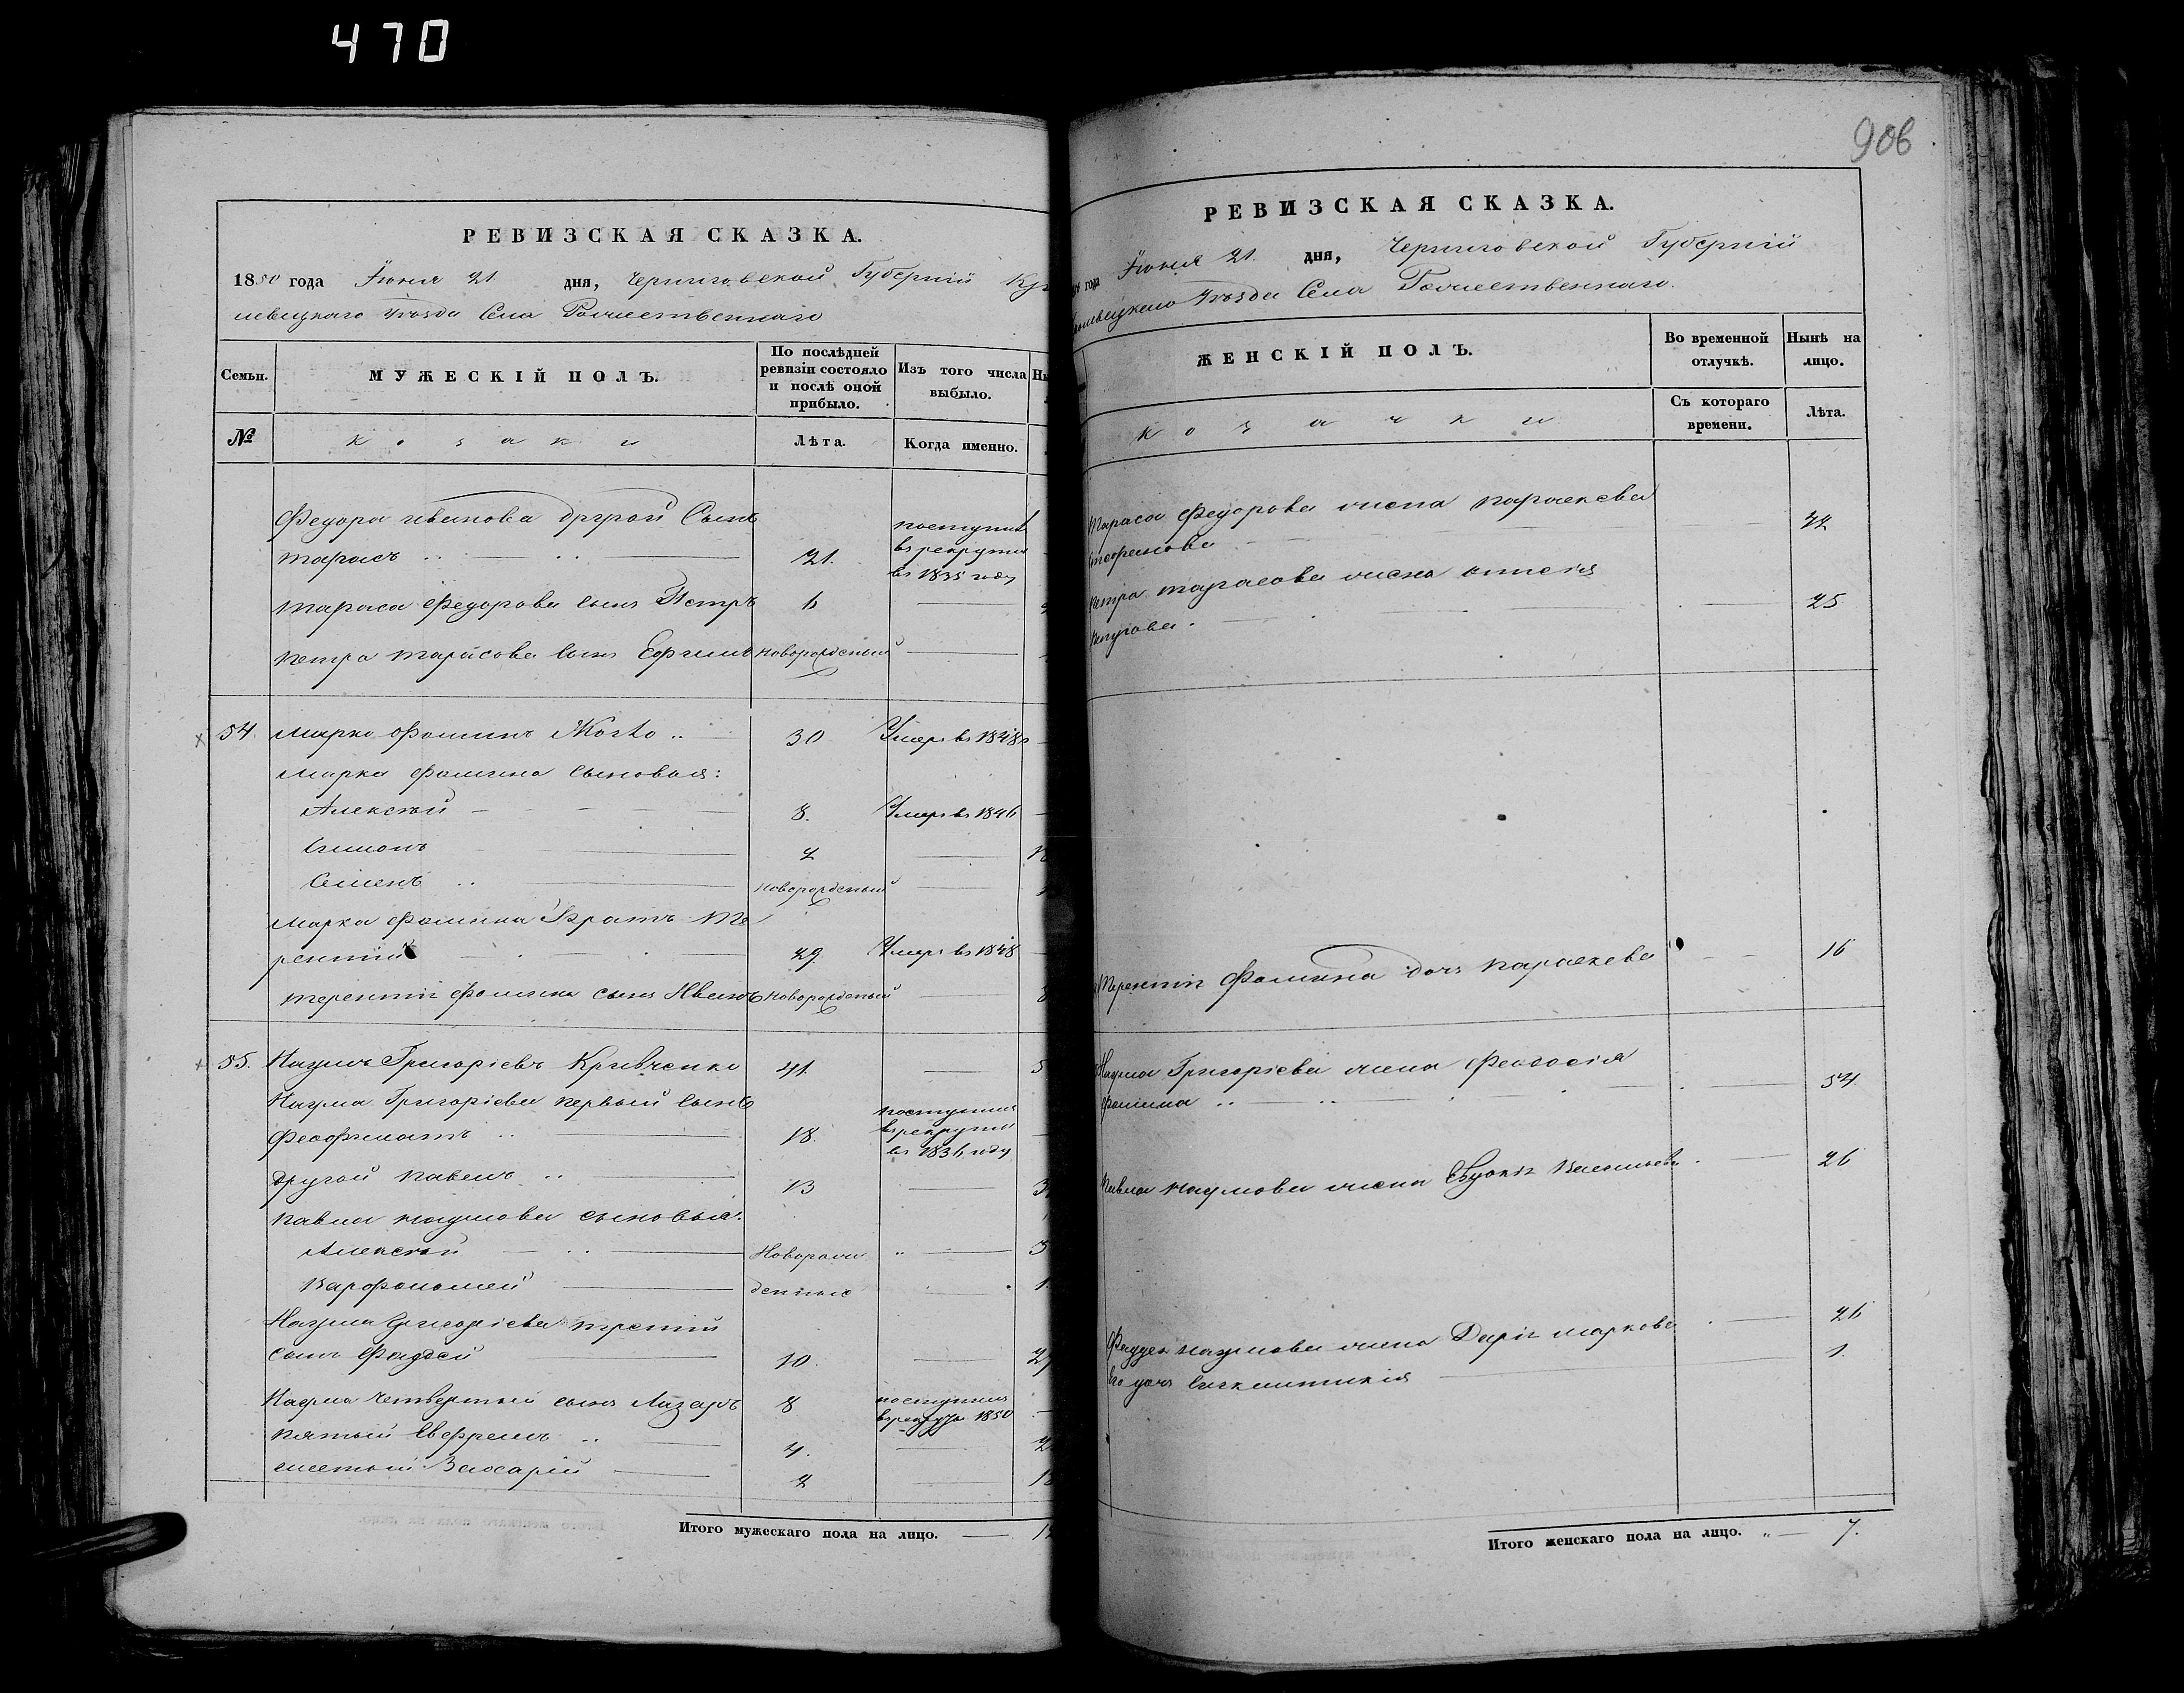 470
РЕВИЗСКАЯ СКАЗКА.
1850 года Іюня 21 дня, Черниговской Губерніи
левецкаго Уѣзда Села Рожественнаго
Семьи.
МУЖЕСКІЙ ПОЛЪ.
По послѣдней ревизіи состояло и послѣ оной прибыло.
Изъ того числа выбыло.
№
козаки
Лѣта.
Когда именно.
Федора иванова другой Сынъ
тарасъ 21. поступилъ в рекруты въ 1835 году
тараса федорова сынъ Петръ 6
петра тарасова сынъ Ефимъ новорожденый
54. Марко Фоминъ
Марка фомина сыновья:
30 Умеръ въ 1848
Алексѣй 8. Умеръ въ 1846
Симонъ
Семенъ новорожденый
Марка фомина Братъ Те
рентій 29. Умеръ въ 1848
терентія фомина сынъ Иванъ новорожденый
55. Наумъ Григоріевъ Кривченко 41.
Наума Григоріева первый сынъ
Феофилактъ 18. поступилъ в рекруты въ 1836 году
другой павелъ 13
павла наумова сыновья:
Алексѣй Новорож
Варфоломей денные
Наума Григоріева третій
сынъ Фаддей 10.
Наума четвертый сынъ Лазарь 8 поступилъ 1850
пятый Евфремъ 4.
шестый 2
Итого мужескаго пола на лицо.
906
РЕВИЗСКАЯ СКАЗКА.
года Іюня 21. дня, Черниговской Губерніи
Уѣзда Села Рожественнаго.
ЖЕНСКІЙ ПОЛЪ.
Во временной отлучкѣ.
Нынѣ на лицо.
козачки
Съ котораго времени.
Лѣта.
Тараса федорова жена параскева
стефанова
петра тарасова жена 25
терентія Фомина дочь параскева 16
Наума Григоріева жена Феодосія
фомина 54
павла наумова жена Васильева 26
Фаддея наумова жена Дарія маркова 26
его дочь 1.
Итого женскаго пола на лицо. 7.